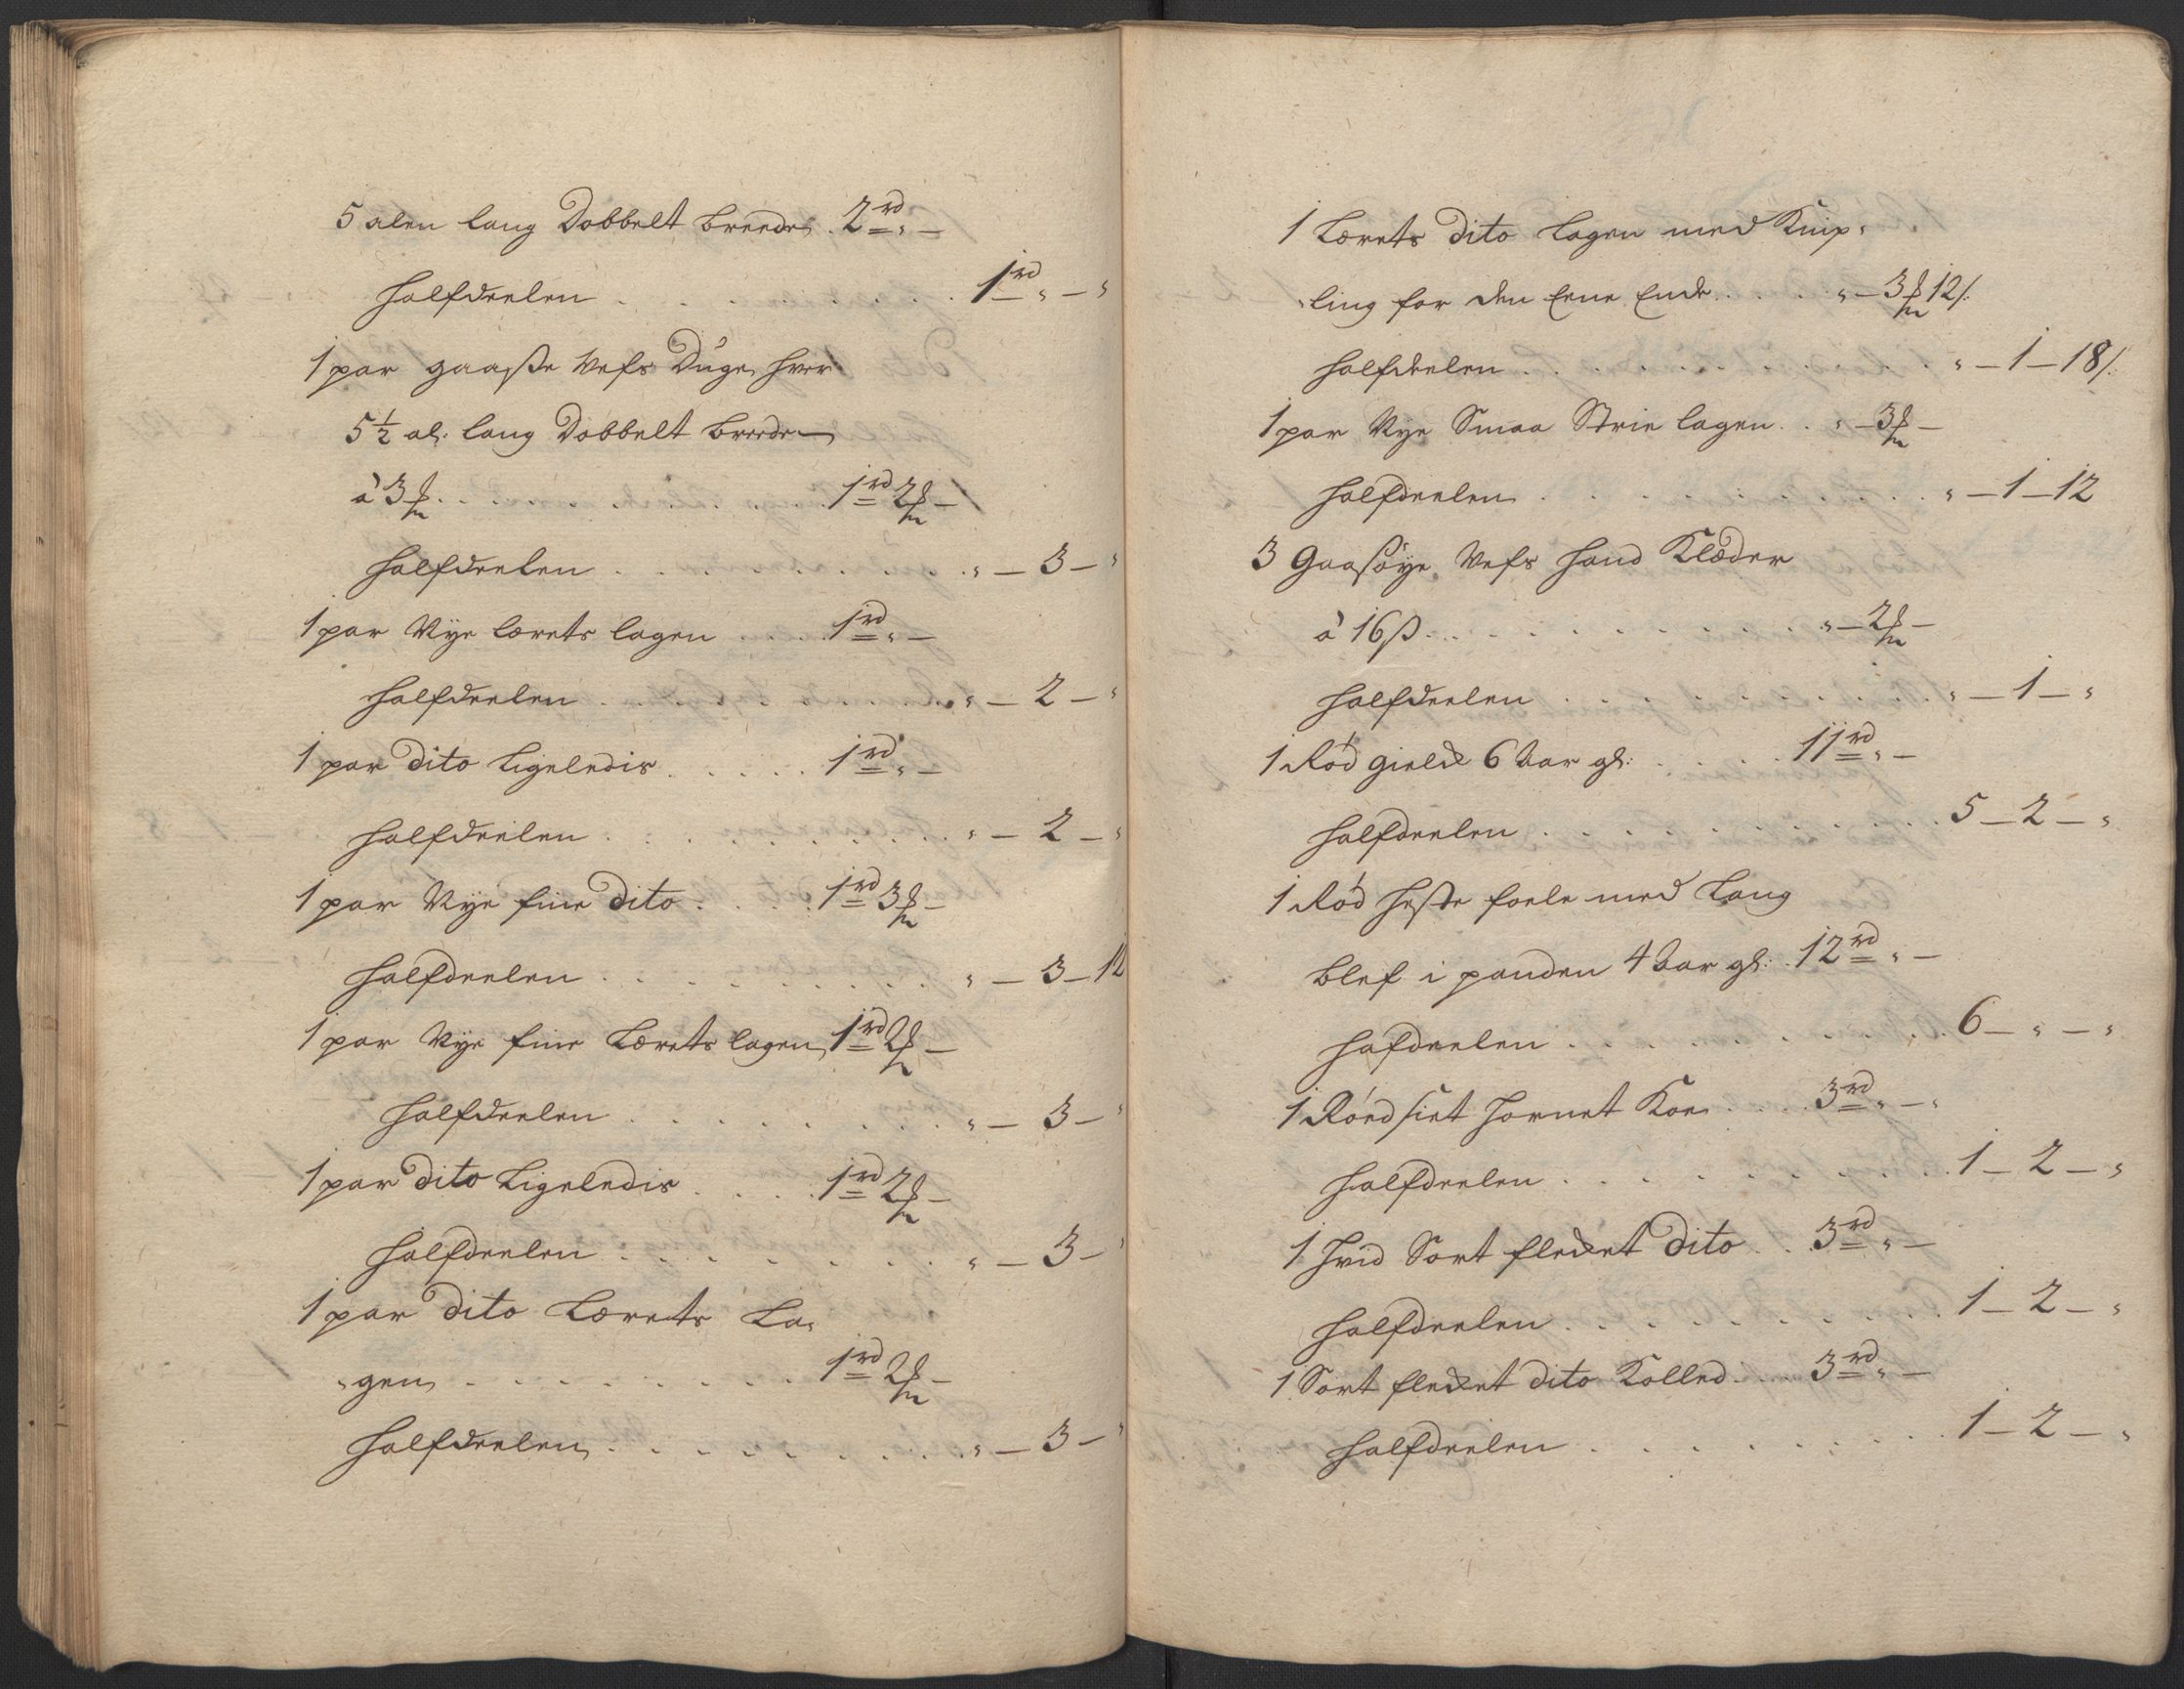 5 alen lang Dobbelt breede . 2 rd " –
halfdeelen . . . . . . . . . 1 rd " – "
1 par gaasse Vefs Duge, hver
5 ½ al: lang Dobbelt breede
à 3 ℳ . . . . . . . . 1 rd 2 ℳ –
halfdeelen . . . . . . . . " – 3 – "
1 par Nye lærets lagen . . . . 1 rd " –
halfdeelen . . . . . . . . " – 2 – "
1 par dito Ligeledis . . . . . 1 rd " –
halfdeelen . . . . . . . . " – 2 – "
1 par Nye fine dito . . . . 1 rd 3 ℳ –
halfdeelen . . . . . . . . " – 3 – 12
1 par Nye fine Lærets lagen, 1 rd 2 ℳ –
halfdeelen . . . . . . . . " – 3 – "
1 par dito Ligeledis . . . . . 1 rd 2 ℳ –
halfdeelen . . . . . . . . " – 3 – "
1 par dito Lærets La-
-gen, . . . . . . . . 1 rd 2 ℳ –
halfdeelen, . . . . . . . . " – 3 – "
1 Lærets dito lagen med Knip-
-ling for den Eene Ende . . . . " – 3 ℳ 12 /:
halfdeelen . . . . . . . . " – 1 – 18 /:
1 par Nye Smaa Strie lagen . . " – 3 ℳ –
halfdeelen . . . . . . . . " – 1 – 12
3 Gaasøye Vefs Haand Klæder
à 16 β . . . . . . . . " – 2 ℳ –
halfdeelen . . . . . . . . " – 1 – "
1 Rød gield 6 Aar gl: . . . . 11 rd " –
halfdeelen . . . . . . . . 5 – 2 – "
1 Rød heste foele med Lang
blef i panden 4 Aar gl: . 12 rd " –
hafdeelen . . . . . . . . 6 – " – "
1 Rød siet Hornet Koe . . . . 3 rd " – "
halfdeelen . . . . . . . . 1 – 2 – "
1 Hvid Sort flecket dito . . 3 rd " –
halfdeelen . . . . . . . . 1 – 2 – "
1 Sort flecket dito Kolled . . . 3 rd " –
halfdeelen . . . . . . . . 1 – 2 – "